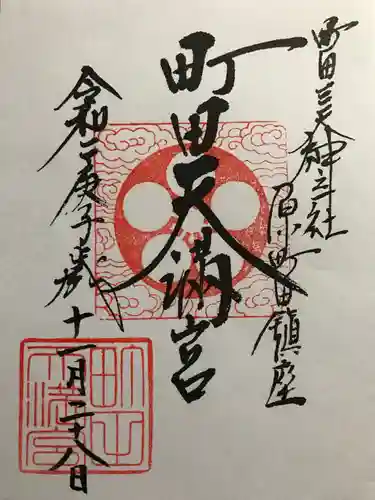 町田三天神之一社
原町田鎮座
町田天満宮
令和二庚子歳
十一月二十八日
町田天満宮